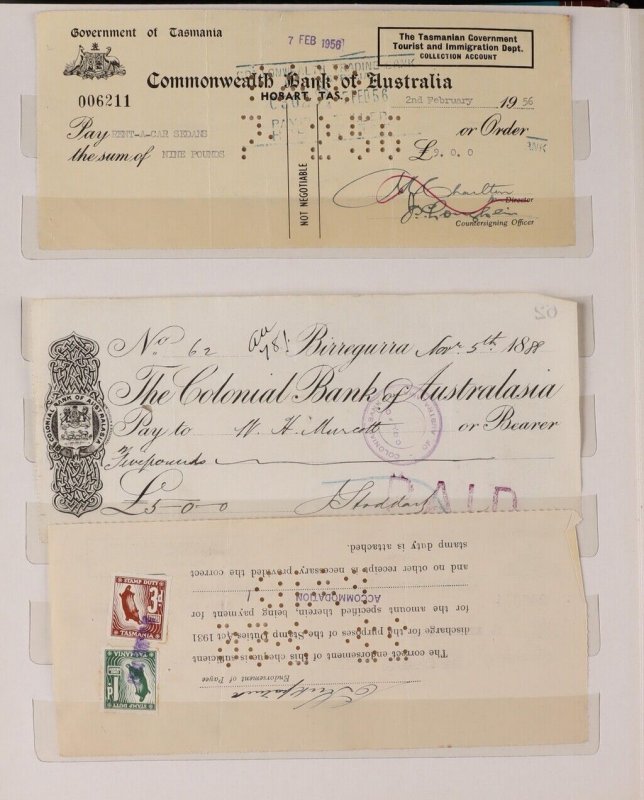 Government of Tasmania
7 FEB 1956
The Tasmanian Government
Tourist and Immigration Dept.
COLLECTION ACCOUNT
Commonwealth Bank of Australia
HOBART TAS.
006211
2nd February 1956
Pay RENT-A-CAR SEDANS or Order
the sum of NINE POUNDS £9. 0. 0
NOT NEGOTIABLE
Charlton
Director
Countersigning Officer
62
No 62 Birregurra Nov. 5th 1888
The Colonial Bank of Australasia
COLONIAL BANK OF AUSTRALASIA
Pay to W. H. Marcott or Bearer
Five pounds
£5-0-0 J Stoddart
PAID
Endorsement of Payee
The correct endorsement of this cheque is sufficient
discharge for the purposes of the Stamp Duties Act 1931
for the amount specified therein, being payment for
ACCOMMODATION
and no other receipt is necessary provided the correct
stamp duty is attached.
STAMP DUTY
3d
TASMANIA
TASMANIA
1d
STAMP DUTY